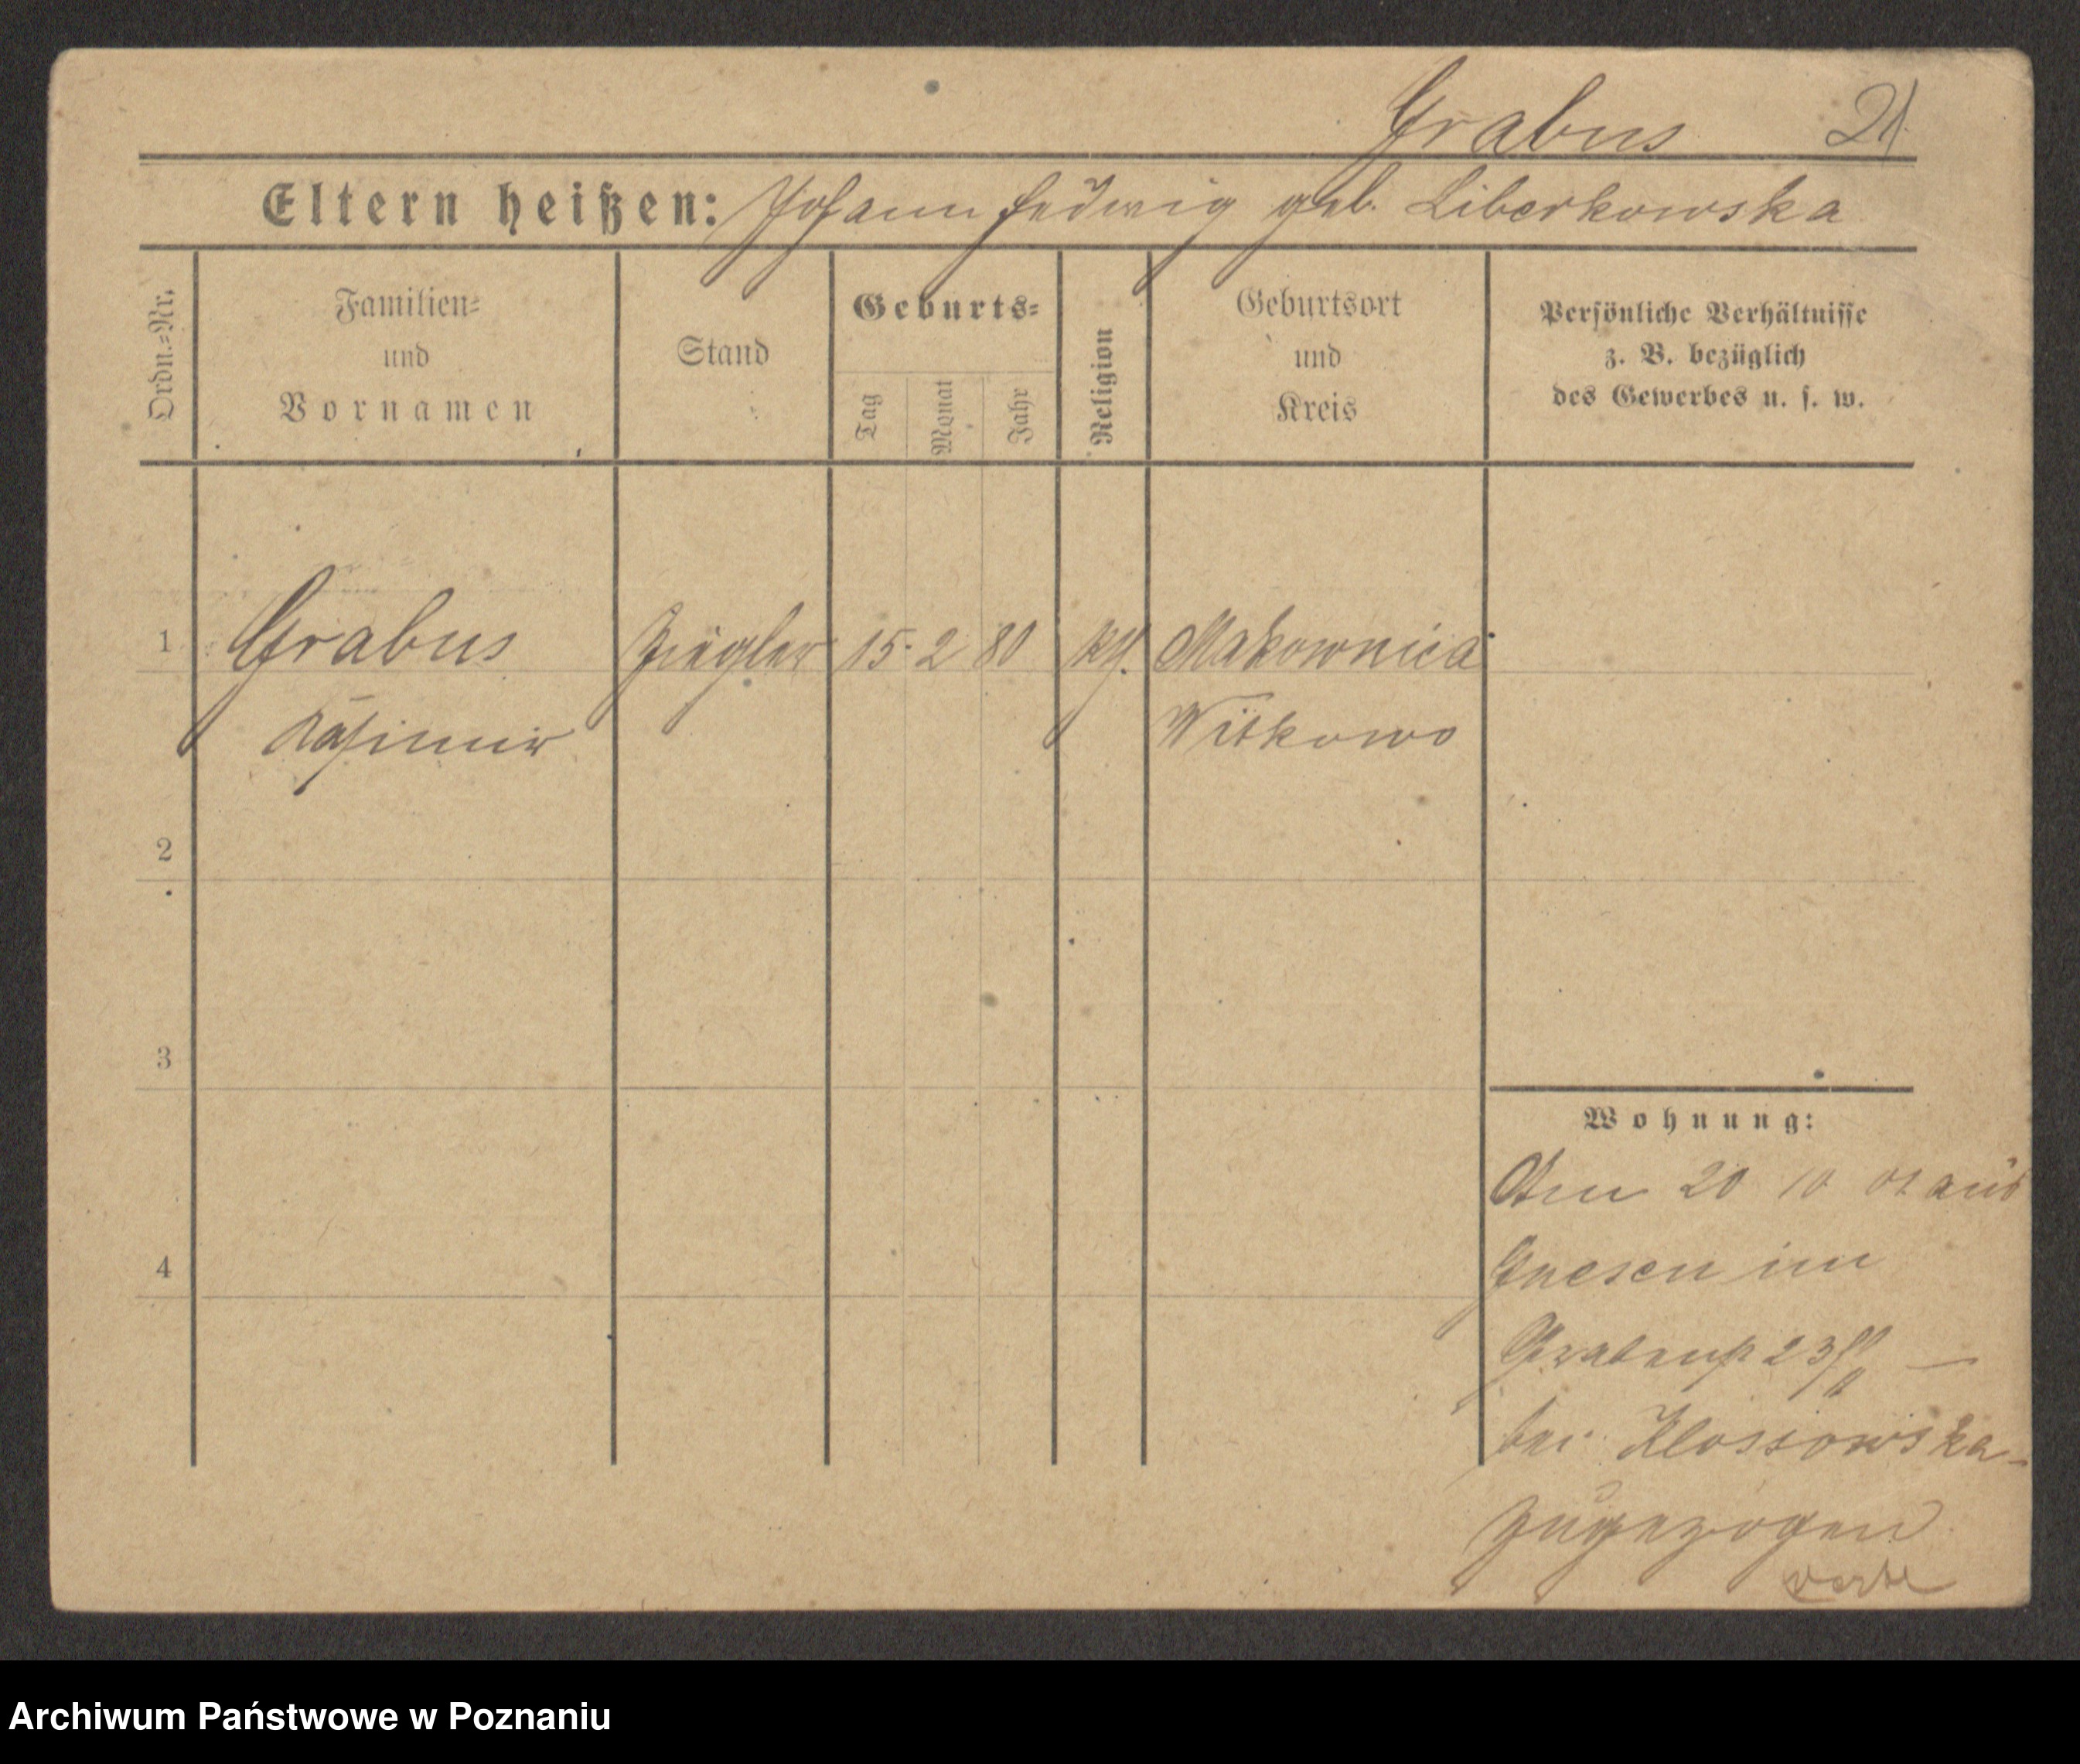 Grabus 21
Eltern heißen: Johann Hedwig geb. Liberkowska
Ordn.-Nr.
Familien-
und
Vornamen
Stand
Geburts-
Tag
Monat
Jahr
Religion
Geburtsort
und
Kreis
Persönliche Verhältnisse
z. B. bezüglich
des Gewerbes u. s. w.
1 Grabus Ziegler 15. 2 80 kth. Makownica
Kasimir Witkowo
2
3
4
Wohnung:
Am 20 10 01 aus
Gnesen im
Grabenstr 23
bei Klossowska
zugezogen
verte
Archiwum Państwowe w Poznaniu